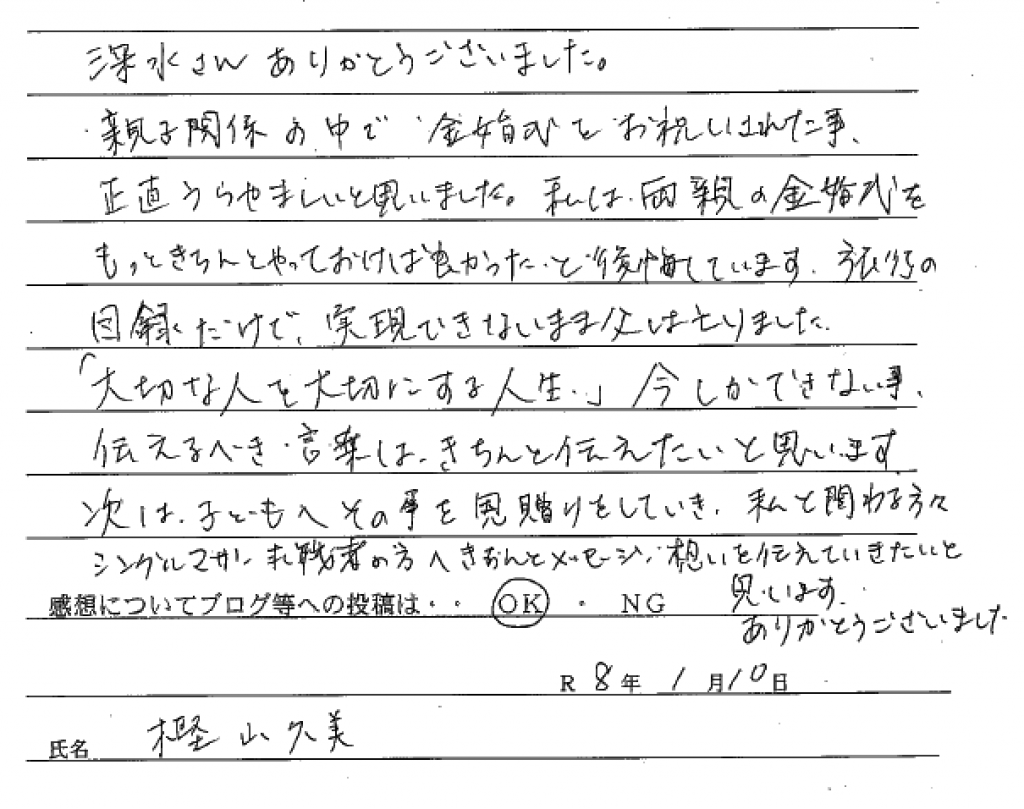 深水さん ありがとうございました。
親子関係の中で 金婚式をお祝いされた事、
正直うらやましいと思いました。私は、両親の金婚式を
もっときちんとやっておけば良かったと後悔しています。旅行の
目録だけで、実現できないまま父は亡くなりました。
「大切な人を大切にする人生。」今しかできない事、
伝えるべき言葉は、きちんと伝えたいと思います。
次は、子どもへその事を 贈りをしていき、私と関わる方々
シングルマザー 求職者の方へきちんとメッセージ、想いを伝えていきたいと
思います。
ありがとうございました
感想についてブログ等への投稿は・・ OK ・ NG
R 8年 1月10日
氏名 樫山久美